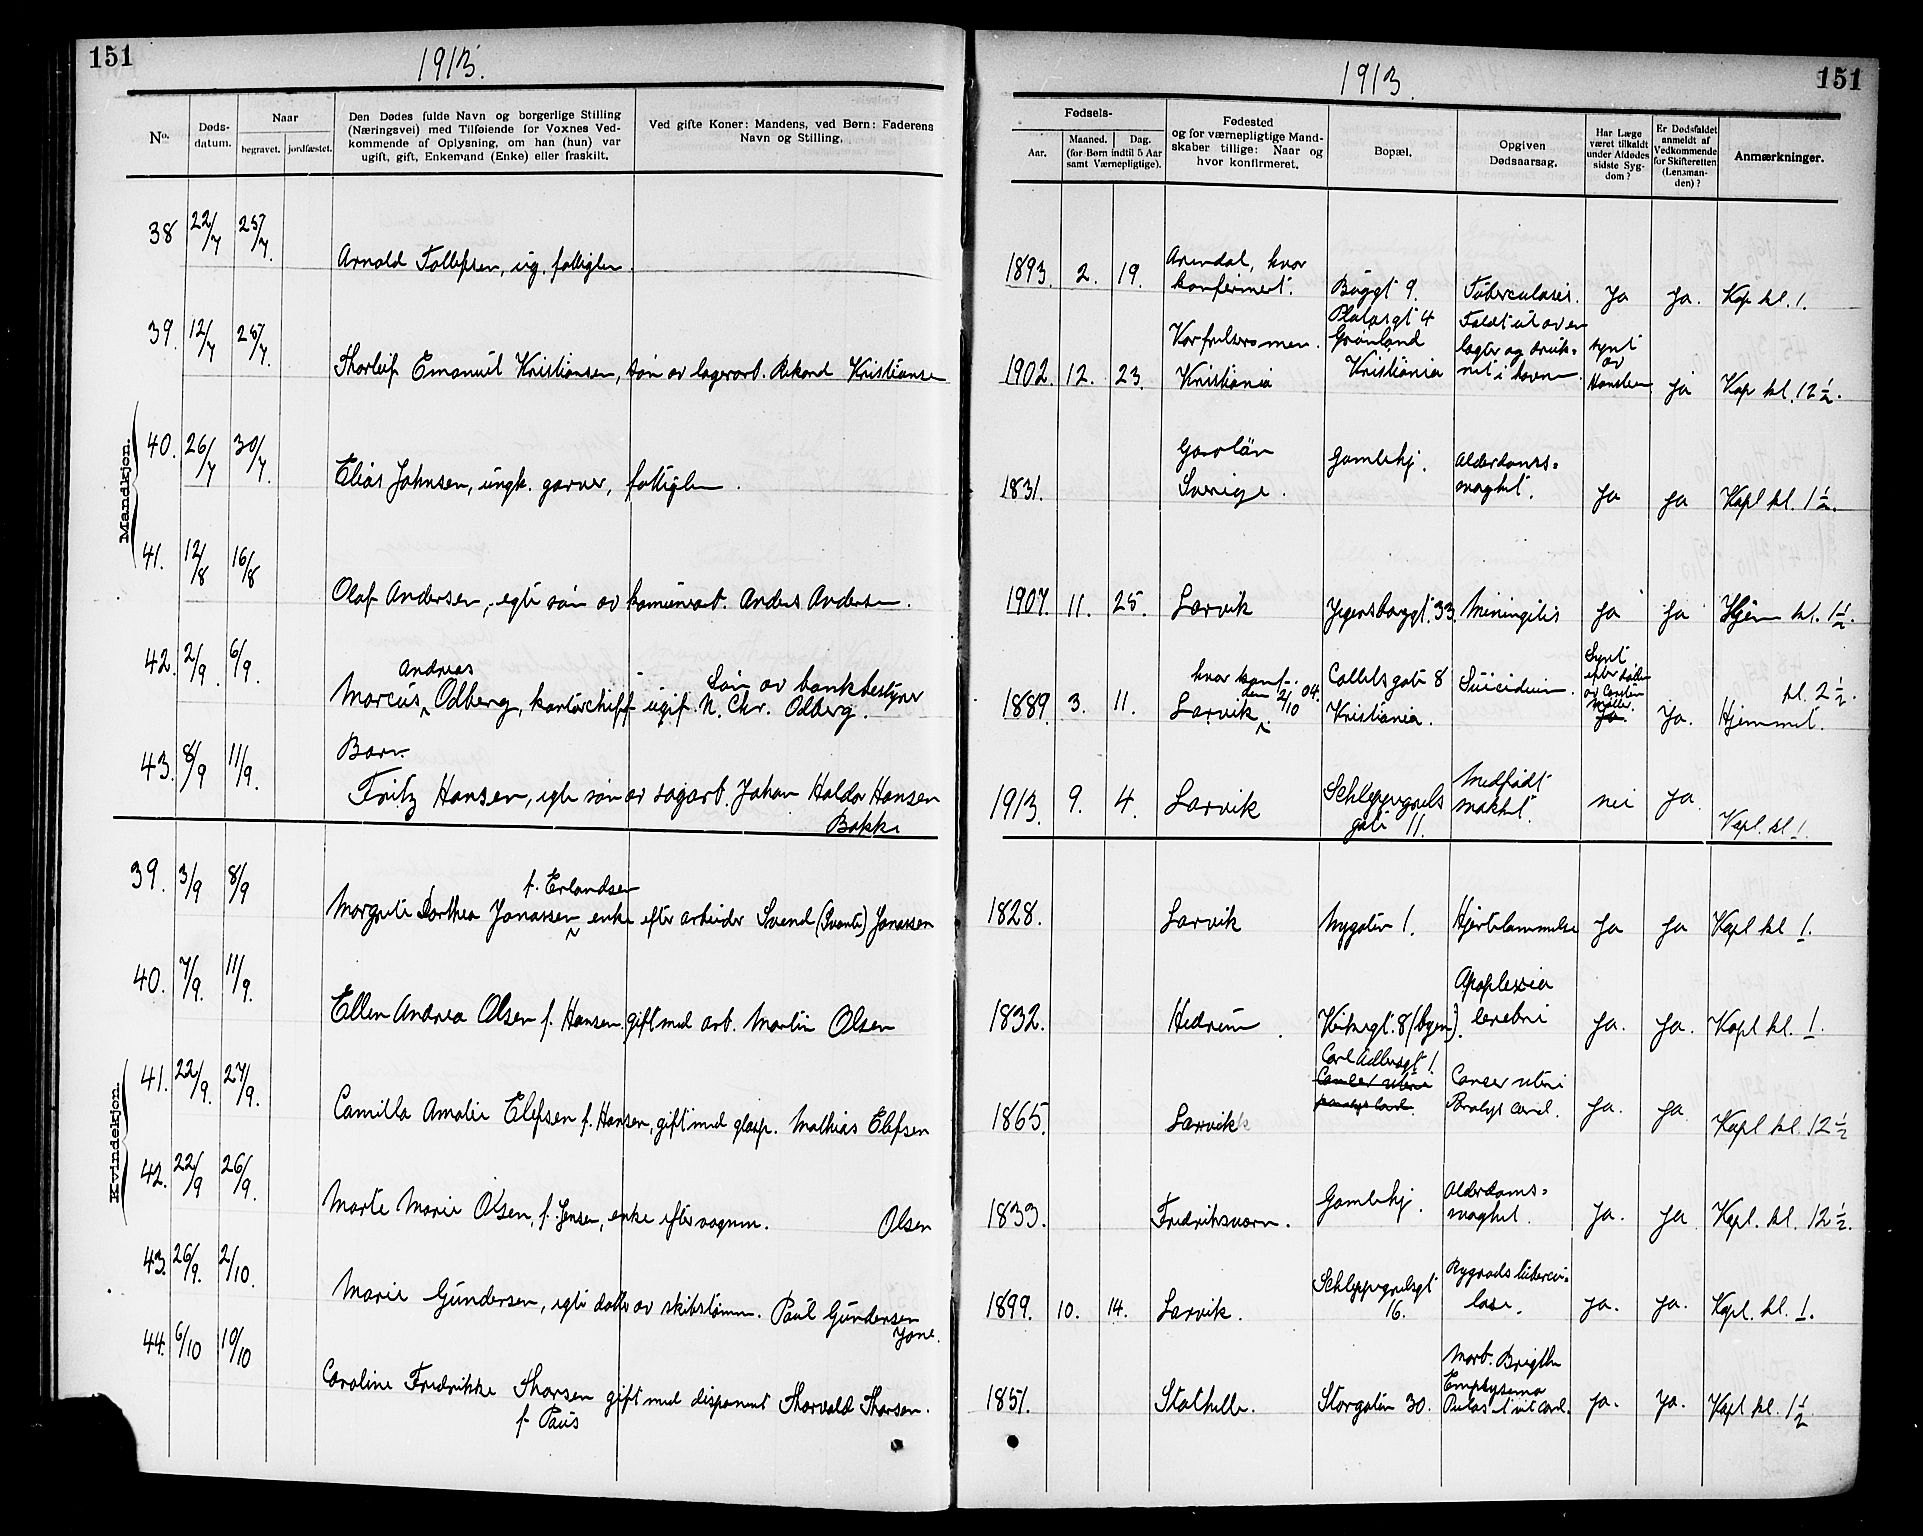 151
1913.
1913.
151
No.
Døds-
datum.
Naar
begravet.
jordfæstet.
Den Dødes fulde Navn og borgerlige Stilling
(Næringsvei) med Tilføiende for Voxnes Ved-
kommende af Oplysning, om han (hun) var
ugift, gift, Enkemand (Enke) eller fraskilt.
Ved gifte Koner: Mandens, ved Børn: Faderens
Navn og Stilling.
Fødsels-
Aar.
Maaned.
Dag.
(for Børn indtil 5 Aar
samt Værnepligtige).
Fødested
og for værnepligtige Mand-
skaber tillige: Naar og
hvor konfirmeret.
Bopæl.
Opgiven
Dødsaarsag.
Har Læge
været tilkaldt
under Afdødes
sidste Syg-
dom?
Er Dødsfaldet
anmeldt af
Vedkommende
for Skifteretten
(Lensman-
den)?
Anmærkninger.
Mandkjøn.
38 22/7 25/7. Arnold Tollefsen, ug. fattiglem. 1893. 2. 19. Arendal, hvor
konfirmert. Büggt 9. Tuberculosis. Ja Ja. Kap kl. 1.
39. 12/7 25/7. Thorleif Emanuel Kristiansen, søn av lagerarb. Rikard Kristiansen
1902. 12. 23. Vorfrelsers men.
Kristiania
Platousgt 4
Grønland
Kristiania
Faldt ut av en
lagter og druk-
net i havnen
synt
av
Ja Kap kl. 12½.
40. 26/7 30/7. Elias Johnsen, ungk. garver, fattiglem. 1831.
Sverige. Gamlehj. Alderdoms-
maghet. Ja Ja Kapl kl. 1½.
41. 12/8 16/8 Olaf Andersen, egte søn av kommunearb. Anders Andersen. 1907. 11. 25. Larvik Jegersborggt. 33. Meningitis Ja Ja Hjem kl. 1½.
42. 2/9. 6/9. Andreas
Marcus Odberg, kontorchef ugif. Søn av bankbestyrer
N. Chr. Odberg. 1889. 3. 11. hvor konf.
den 2/10 04.
Larvik Colletsgate 8
Kristiania. Suicidium. Synt
efter døden
Møller.
Ja Ja. kl. 2½.
Hjemmet.
43. 8/9 11/9. Barn
Fritz Hansen, egte søn av sagarb. Johan Haldor Hansen
Bakke 1913. 9. 4. Larvik Schleppegrels
gate 11. Medfødt
svakhet. nei Ja Kapl. kl 1.
Kvindekjøn.
39. 3/9 8/9 f. Erlandsen
Margrete Dorthea Jonassen enke efter arbeider Svend (Svante) Jonassen 1828. Larvik Nygaten 1. Hjertelammelse Ja Ja Kapl kl 1.
40. 7/9. 11/9. Ellen Andrea Olsen f. Hansen gift med arb. Martin Olsen 1832. Hedrum. Kirkegt. 8 (byen). Apoplexia
cerebri Ja. Ja. Kapl kl. 1.
41. 22/9. 27/9. Camilla Amalie Elefsen f. Hansen, gift med glasp. Mathias Elefsen 1865. Larvik Carl Adlersgt 1.
Cancer uteri
paralys card. Cancer uteri
Paralys card. Ja. Ja Kapl kl. 12½
42. 22/9 26/9. Marte Marie Olsen, f. Jensen, enke efter vognm. Olsen 1833. Fredriksværn. Gamlehj. Alderdoms-
maghet. Ja. Ja Kapl. kl. 12½.
43. 26/9. 2/10. Marie Gundersen, egte datter av skibstømm. Paul Gundersen
1899. 10. 14. Larvik. Schleppegrelsgt
16. Rygrads tubercu-
lose. Ja. Ja. Kapl. kl. 1.
44. 6/10 10/10 Caroline Fredrikke Thorsen gift med disponent Thorvald Thorsen.
f. Paus 1851. Stathelle. Storgaten 30. Morb. Brigthi
Emphysema
Ja. Ja. Kapl kl. 1½